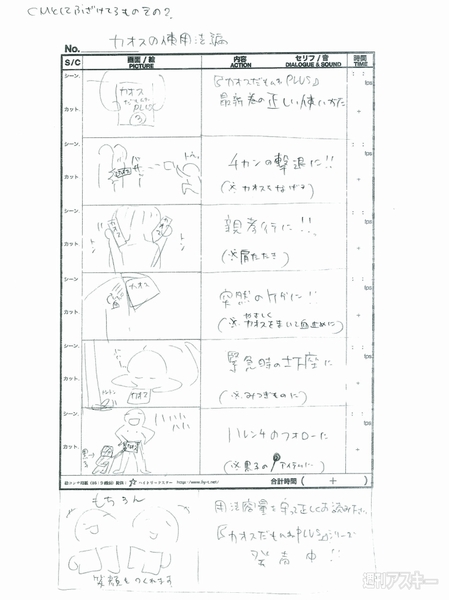 CMとしてふざけてるものその2.
No. カオスの使用法編
S/C
画面/絵
PICTURE
内容
ACTION
セリフ/音
DIALOGUE & SOUND
時間
TIME
シーン.
カット.
カオス!
だもんね
PLUS
③
『カオスだもんね PLUS』
最新巻の正しい使いかた
シーン.
カット.
チカンの撃退に!!
(※カオスをなげる)
シーン.
カット.
カオス
カオス
トン
トン
親孝行に!!
(※肩たたき)
シーン.
カット.
カオス
突然のケガに!!
やさしく
(※カオスをまいて血止めに)
シーン.
カット.
カオス
緊急時の土下座に
(※みつぎものに)
シーン.
カット.
ハハハ
黒子
ハレンチのフォローに
(※黒子のアイテムに)
http://www.fly-t.net/
合計時間 ( + )
もちろん
笑顔もつくれます
用法容量を守って正しくお読み下さい
『カオスだもんねPLUS』シリーズ
発売中!!
週刊アスキー